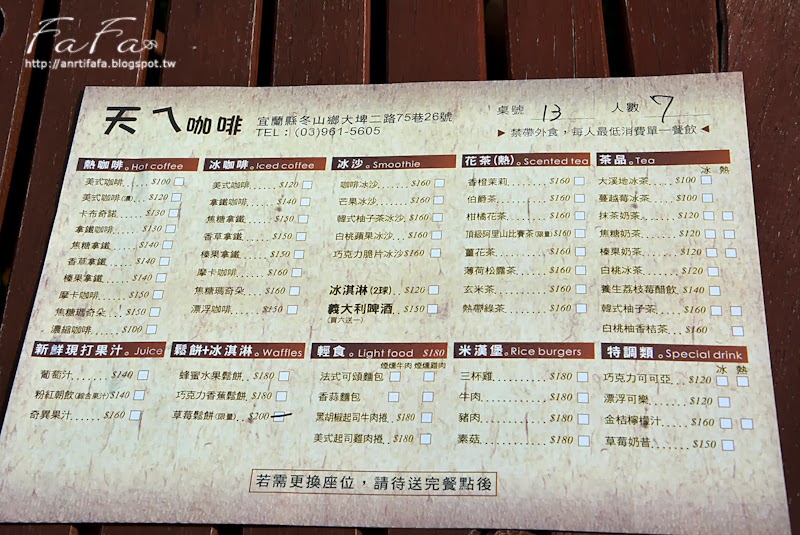 FaFa
http://anrtifafa.blogspot.tw
天ㄟ咖啡
宜蘭縣冬山鄉大埤二路75巷26號
TEL：(03)961-5605
桌號 13 人數 7
▶禁帶外食，每人最低消費單一餐飲◀
熱咖啡。Hot coffee
美式咖啡......$100
美式咖啡(濃)..$120
卡布奇諾......$130
拿鐵咖啡......$130
焦糖拿鐵......$140
香草拿鐵......$140
榛果拿鐵......$140
摩卡咖啡......$150
焦糖瑪奇朵....$150
濃縮咖啡......$100
冰咖啡。Iced coffee
美式咖啡......$120
拿鐵咖啡......$140
焦糖拿鐵......$150
香草拿鐵......$150
榛果拿鐵......$150
摩卡咖啡......$160
焦糖瑪奇朵....$160
漂浮咖啡......$150
冰沙。Smoothie
咖啡冰沙......$160
芒果冰沙......$160
韓式柚子茶冰沙.$160
白桃蘋果冰沙..$160
巧克力脆片冰沙$160
冰淇淋(2球)..$120
義大利啤酒..$150
(買六送一)
花茶(熱)。Scented tea
香橙茉莉......$160
伯爵茶........$160
柑橘花茶......$160
頂級阿里山比賽茶(限量)$160
薑花茶........$160
薄荷松露茶....$160
玄米茶........$160
熱帶綠茶......$160
茶品。Tea
冰 熱
大溪地冰茶....$100
蔓越莓冰茶....$160
抹茶奶茶......$160
焦糖奶茶......$150
榛果奶茶......$150
白桃冰茶......$160
養生荔枝莓醋飲.$140
韓式柚子茶....$160
白桃柚香桔茶..$160
新鮮現打果汁。Juice
葡萄汁........$140
粉紅朝飲(綜合果汁)$140
奇異果汁......$160
鬆餅+冰淇淋。Waffles
蜂蜜水果鬆餅..$180
巧克力香蕉鬆餅.$180
草莓鬆餅(限量)..$200
輕食。Light food $180
煙燻牛肉 煙燻雞肉
法式可頌麵包
香蒜麵包
黑胡椒起司牛肉捲..$180
美式起司雞肉捲.$180
米漢堡。Rice burgers
三杯雞........$180
牛肉..........$180
豬肉..........$180
素菇..........$180
特調類。Special drink
冰 熱
巧克力可可亞..$120
漂浮可樂......$120
金桔檸檬汁....$160
草莓奶昔......$150
若需更換座位，請待送完餐點後